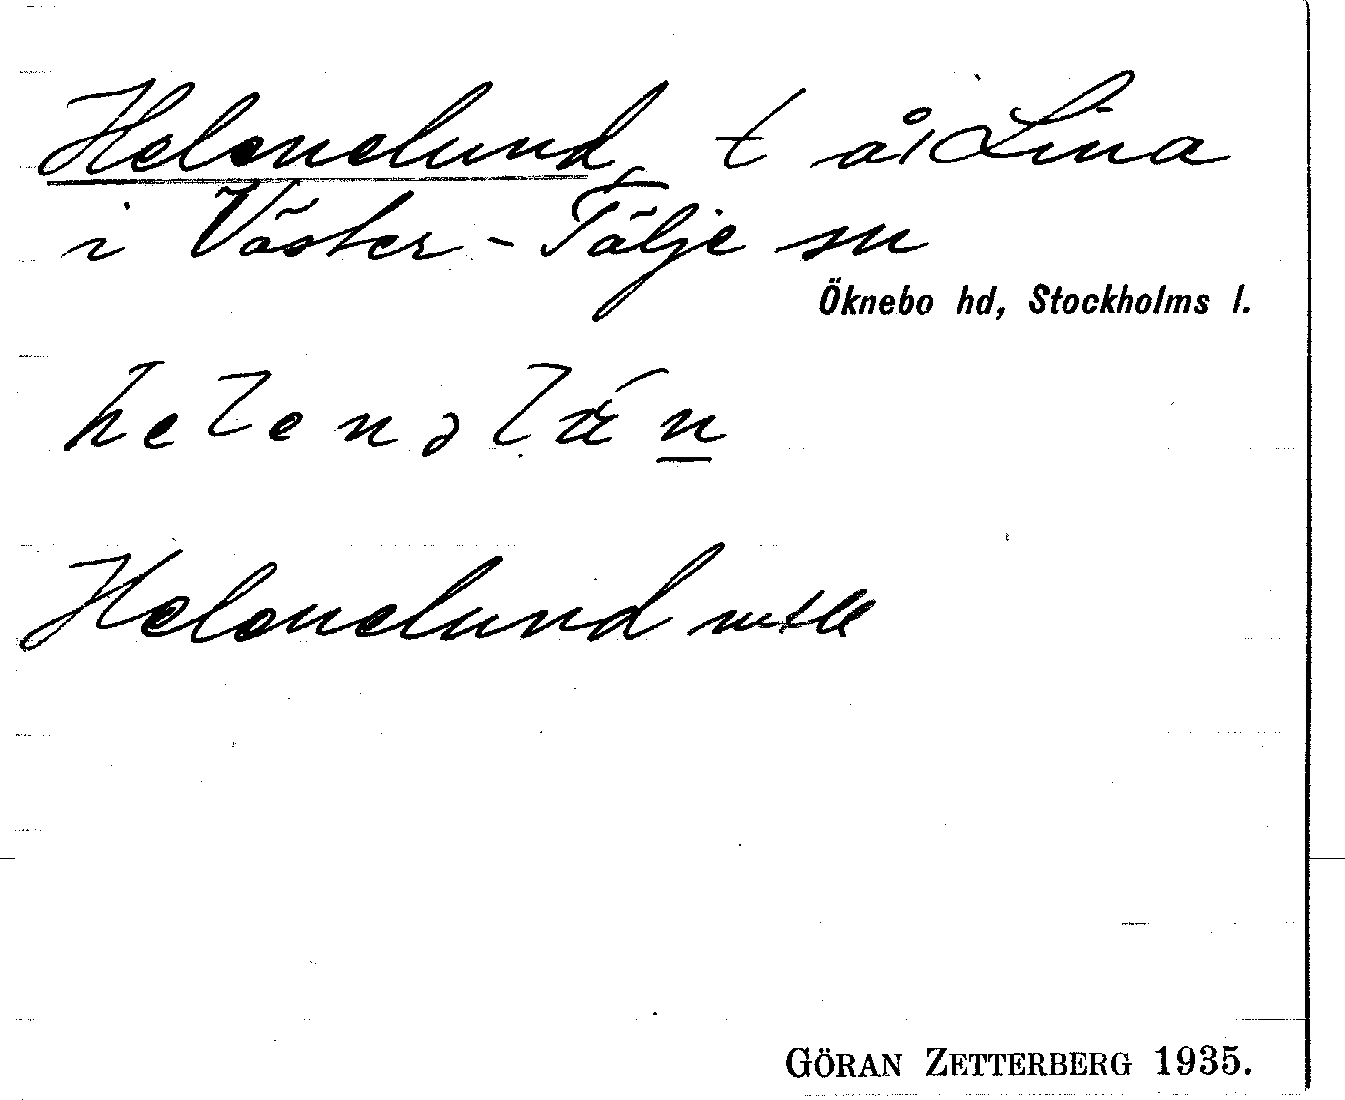 Helenelund, t å i Lina
i Väster-Tälje sn
Öknebo hd, Stockholms l.
Helenelund
GÖRAN ZETTERBERG 1935.